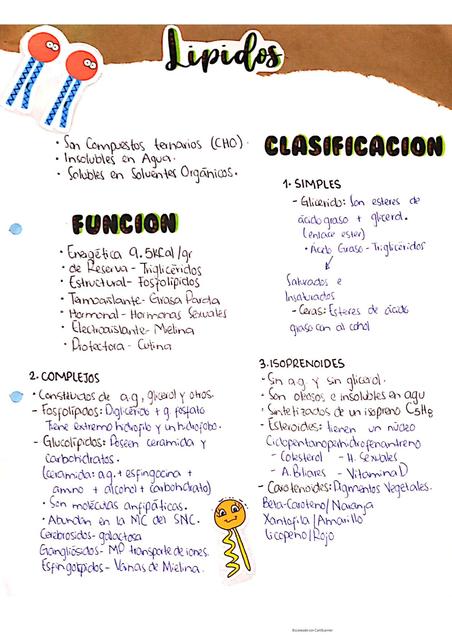 Lipidos
• Son Compuestos ternarios (CHO).
• Insolubles en Agua.
• Solubles en Solventes Orgánicos.
FUNCION
• Energética 9.5Kcal/gr
• de Reserva - Triglicéridos
• Estructural - Fosfolípidos
• Termoaislante - Grasa Parda
• Hormonal - Hormonas Sexuales
• Electroaislante - Mielina
• Protectora - Cutina
CLASIFICACION
1. SIMPLES
- Glicérido: Son esteres de
ácido graso + glicerol.
(enlace ester)
• Acido Graso - Triglicéridos
Saturados e
Insaturados
- Ceras: Esteres de ácido
graso con al cohol
2. COMPLEJOS
• Constituidos de a.g, glicerol y otros.
- Fosfolípidos: Diglicérido + g. fosfato
Tiene extremo hidrofilo y un hidrofobo.
- Glucolípidos: Poseen ceramida y
carbohidratos.
(ceramida: a.g. + esfingocina +
amino + alcohol + carbohidrato)
• Son moléculas anfipáticas.
• Abundan en la MC del SNC.
Cerebrosidos - galactosa
Gangliósidos - MP transporte de iones.
Esfingolípidos - Vainas de Mielina.
3. ISOPRENOIDES
• Sin a.g y sin glicerol.
• Son oleosos e insolubles en agu
• Sintetizados de un isopreno C5H8
- Esteroides: tienen un núcleo
Ciclopentanoperhidrofenantreno
- Colesterol - H. Sexuales
- A. Biliares - Vitamina D
- Carotenoides: Pigmentos Vegetales.
Beta-Caroteno/Naranja
Xantofila/Amarillo
Licopeno/Rojo
Escaneado con CamScanner